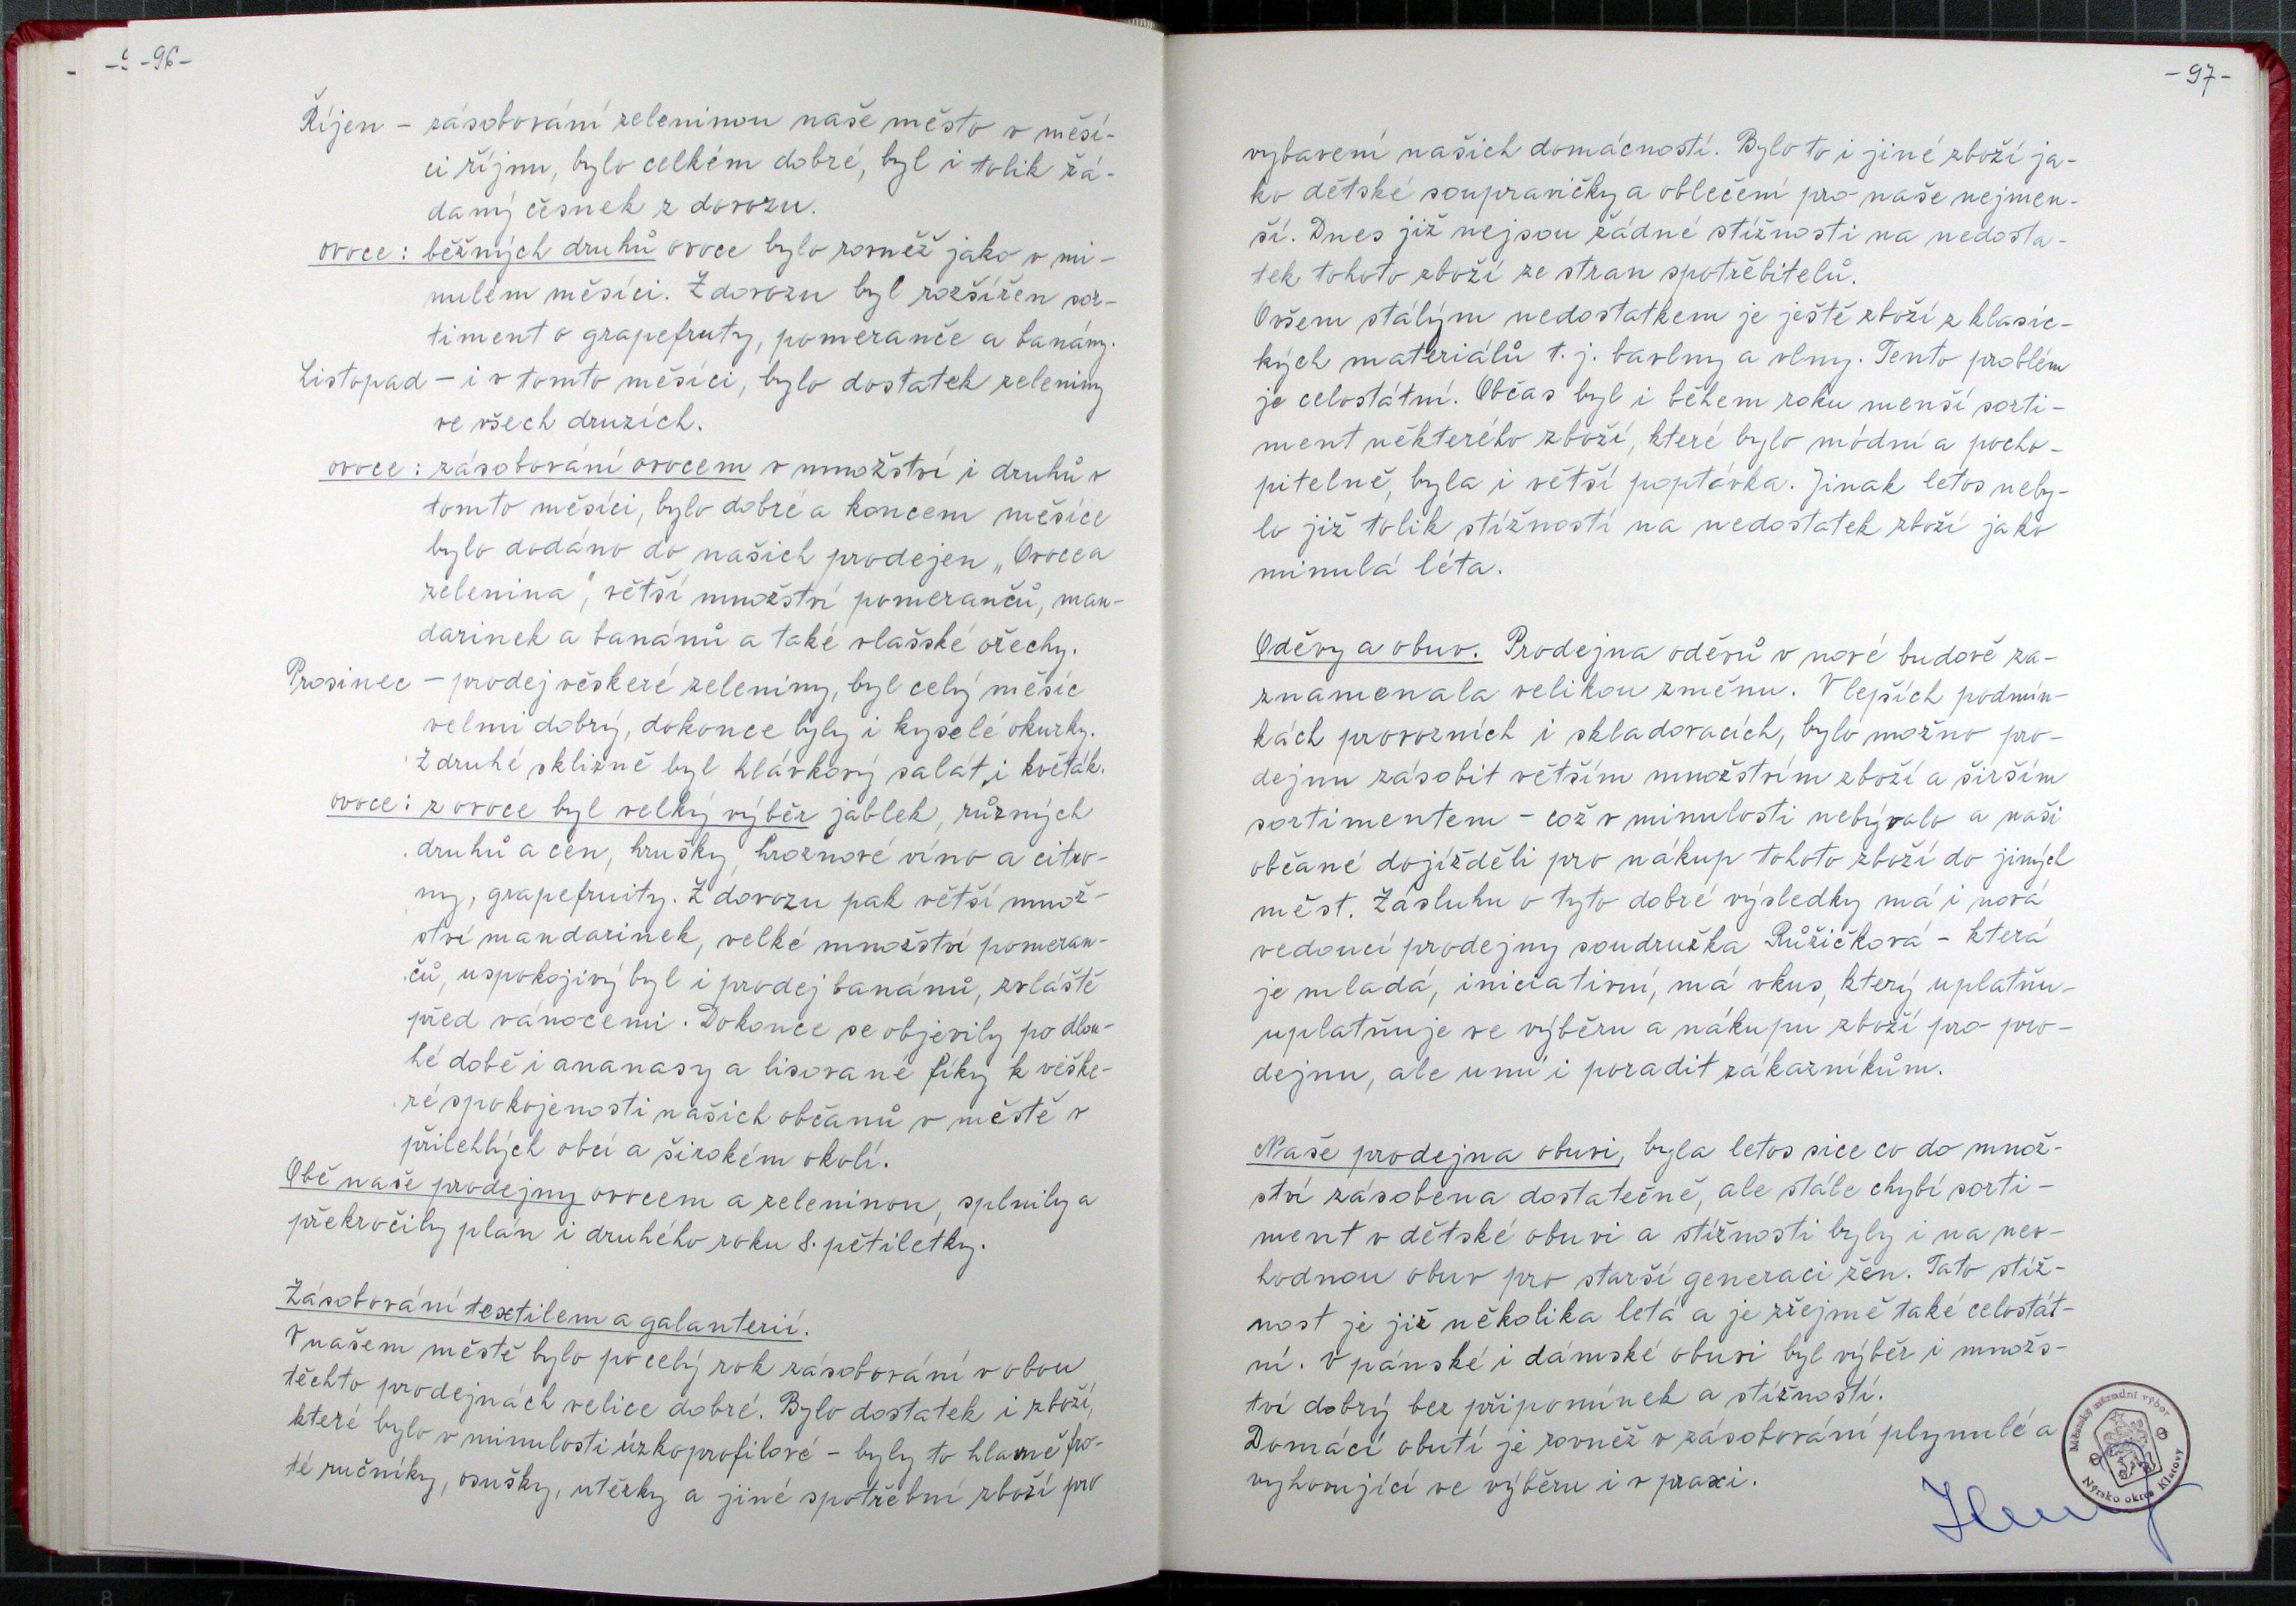 -96-
Říjen - zásobování zeleninou naše město v měsí-
ci říjnu, bylo celkém dobré, byl i tolik žá-
daný česnek z dovozu.
ovoce: běžných druhů ovoce bylo rovněž jako v mi-
nulém měsíci. Z dovozu byl rozšířen sor-
timent o grapefruty, pomeranče a banány.
Listopad - i v tomto měsíci, bylo dostatek zeleniny
ve všech druzích.
ovoce: zásobování ovocem v množství i druhů v
tomto měsíci, bylo dobré a koncem měsíce
bylo dodáno do našich prodejen „Ovoce a
zelenina", větší množství pomerančů, man-
darinek a banánů a také vlašské ořechy.
Prosinec - prodej věškeré zeleniny, byl celý měsíc
velmi dobrý, dokonce byly i kyselé okurky.
Z druhé sklizně byl hlávkový salát, i květák.
ovoce: z ovoce byl velký výběr jablek, různých
druhů a cen, hrušky, hroznové víno a citro-
ny, grapefruity. Z dovozu pak větší množ-
ství mandarinek, velké množství pomeran-
čů, uspokojivý byl i prodej banánů, zvláště
před vánocemi. Dokonce se objevily po dlou-
hé době i ananasy a lisované fíky k věške-
ré spokojenosti našich občanů v městě v
přilehlých obcí a širokém okolí.
Obě naše prodejny ovocem a zeleninou, splnily a
překročily plán i druhého roku 8. pětiletky.
Zásobování textilem a galanterií.
V našem městě bylo po celý rok zásobování v obou
těchto prodejnách velice dobré. Bylo dostatek i zboží,
které bylo v minulosti úzkoprofilové - byly to hlavně fro-
té ručníky, osušky, utěrky a jiné spotřební zboží pro
-97-
vybavení našich domácností. Bylo to i jiné zboží ja-
ko dětské soupravičky a oblečení pro naše nejmen-
ší. Dnes již nejsou žádné stížnosti na nedosta-
tek tohoto zboží ze stran spotřebitelů.
Ovšem stálým nedostatkem je ještě zboží z klasic-
kých materiálů t. j. bavlny a vlny. Tento problém
je celostátní. Občas byl i během roku menší sorti-
ment některého zboží, které bylo módní a pocho-
pitelně, byla i větší poptávka. Jinak letos neby-
lo již tolik stížností na nedostatek zboží jako
minulá léta.
Oděvy a obuv. Prodejna oděvů v nové budově za-
znamenala velikou změnu. V lepších podmín-
kách provozních i skladovacích, bylo možno pro-
dejnu zásobit větším množstvím zboží a širším
sortimentem - což v minulosti nebývalo a naši
občané dojížděli pro nákup tohoto zboží do jiných
měst. Zásluhu o tyto dobré výsledky má i nová
vedoucí prodejny soudružka Růžičková - která
je mladá, iniciativní, má vkus, který uplatňu-
uplatňuje ve výběru a nákupu zboží pro pro-
dejnu, ale umí i poradit zákazníkům.
Naše prodejna obuvi, byla letos sice co do množ-
ství zásobena dostatečně, ale stále chybí sorti-
ment v dětské obuvi a stížnosti byly i na nev-
hodnou obuv pro starší generaci žen. Tato stíž-
nost je již několika letá a je zřejmě také celostát-
ní. V pánské i dámské obuvi byl výběr i množs-
tví dobrý bez připomínek a stížností.
Domácí obutí je rovněž v zásobování plynulé a
vyhovující ve výběru i v praxi.
Městský národní výbor
Nýrsko okres Klatovy